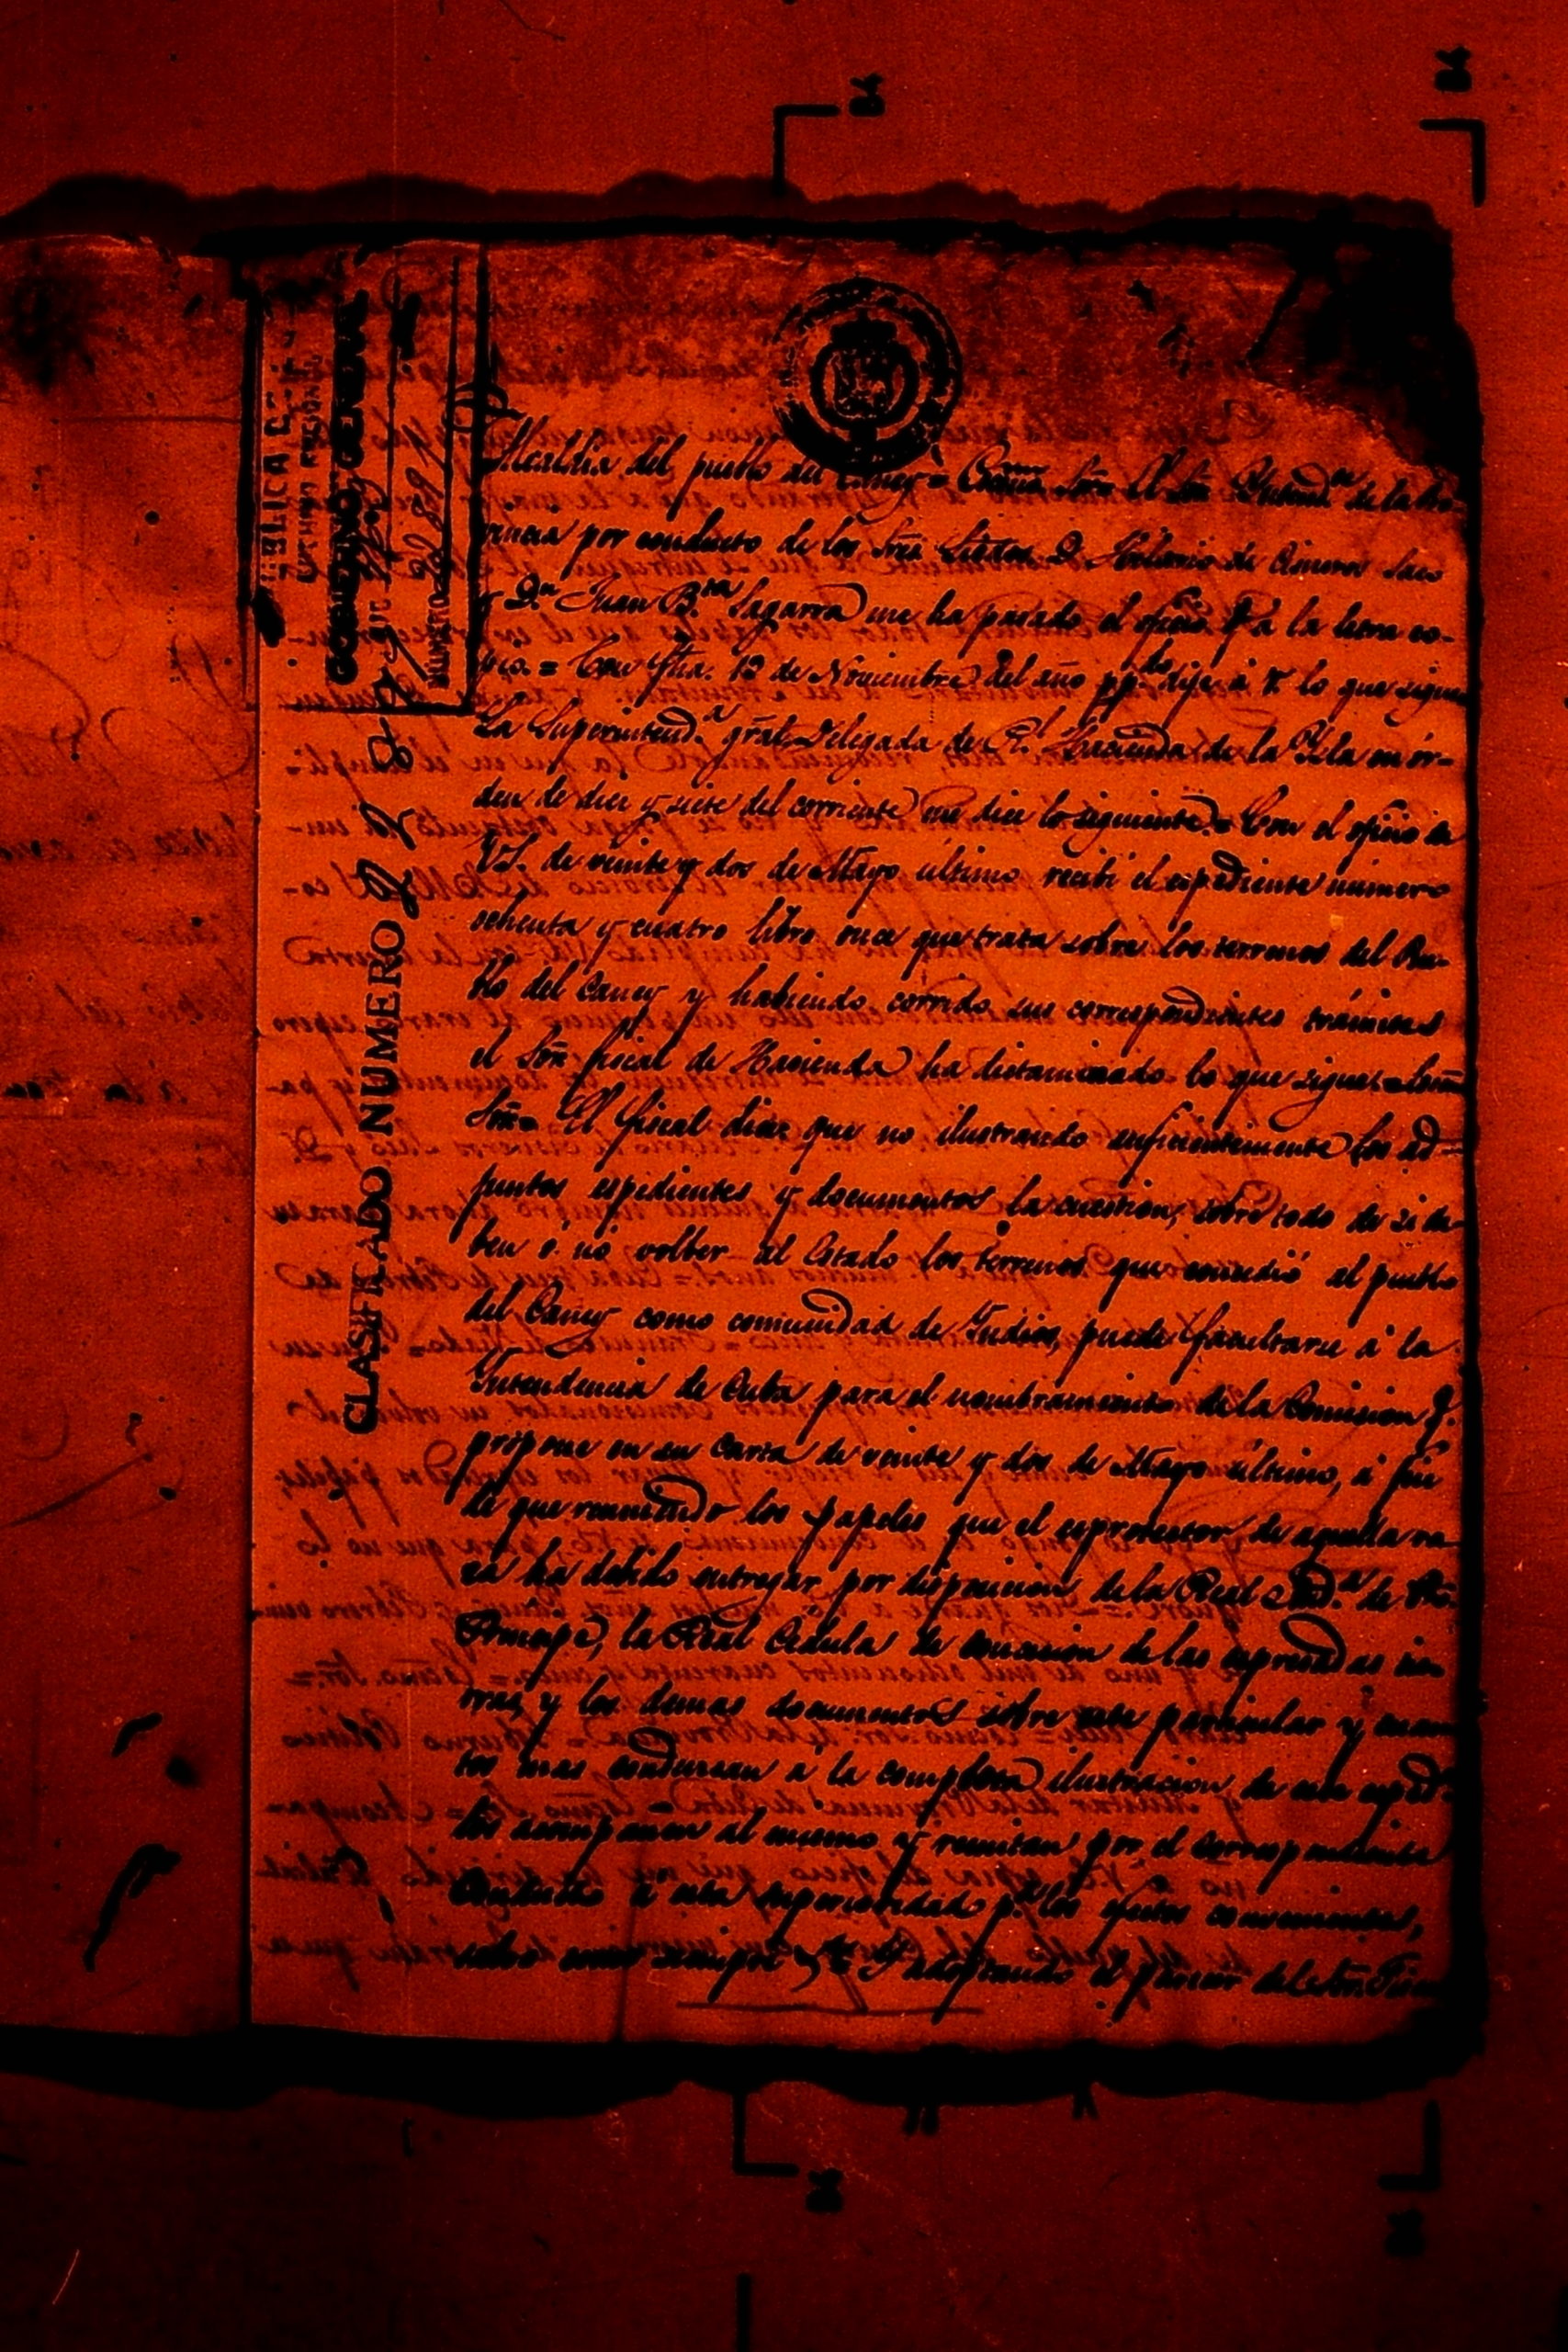 GOBIERNO GENERAL
NUMERO
CLASIFICADO NUMERO
Alcaldia del pueblo del Caney = Escmo Sor. El Sor. Yntend.ª de la Pro-
vincia por conducto de los Sres. D. de Cisneros Saco
y D.n Juan B.ta Sagarra me ha pasado el oficio q.e a la letra co-
pio. = Con fha. 12 de Noviembre del año pp.do dije á V. lo que sigue
La Superintend.ª gral Delegada de R.l Hacienda de la Ysla en ór-
den de diez y siete del corriente me dice lo siguiente. = Con el oficio de
VS. de veinte y dos de Mayo último recibí el espediente número
ochenta y cuatro libro once que trata sobre los terrenos del Pue-
blo del Caney y habiendo corrido sus correspondientes trámites
el Sor. fiscal de Hacienda ha dictaminado lo que sigue = Escmo
Sor. = El fiscal dice que no ilustrando suficientemente los ad-
juntos espedientes y documentos la cuestion, sobre todo de si de-
ben ó no volber al Estado los terrenos que concedió al pueblo
del Caney como comunidad de Yndios, puede facultarse á la
Yntendencia de Cuba para el nombramiento de la Comision q.
propone en su carta de veinte y dos de Mayo último, á fin
de que reuniendo los papeles que el esprotector de aquella ra-
za ha debido entregar por disposicion de la Real Aud.ª de Pto.
Principe, la Real Cédula de concesion de las espresadas tier-
rras, y los demas documentos sobre este particular y cuan-
tos mas conduzcan á la completa ilustracion de este esped.te
los acompañen al mismo y remitan por el correspondiente
conducto á esta superioridad p.ª los efectos consecuentes,
salvo como siempre &.ª Y adoptando el parecer del Sor. Fiscal